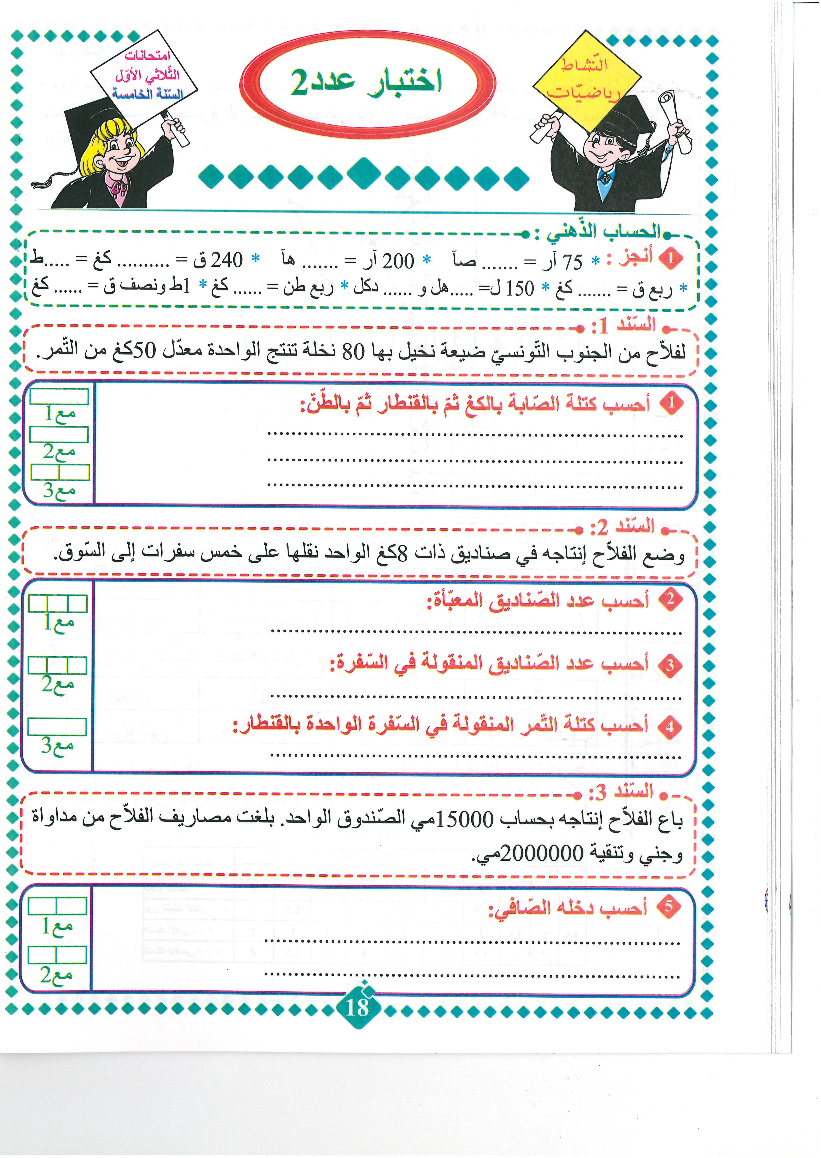 النّشاط
رياضيّات
اختبار عدد2
امتحانات
الثّلاثي الأوّل
السّنة الخامسة
الحساب الذّهني :
1 أنجز : * 75 آر = ....... صآ * 200 آر = ....... هآ * 240 ق = .......... كغ = .....ط
* ربع ق = ....... كغ * 150 ل= .....هل و ...... دكل * ربع طن = ...... كغ * 1ط ونصف ق = ...... كغ
السّند 1:
لفلاّح من الجنوب التّونسيّ ضيعة نخيل بها 80 نخلة تنتج الواحدة معدّل 50كغ من التّمر.
1 أحسب كتلة الصّابة بالكغ ثمّ بالقنطار ثمّ بالطّنّ:
مع1
مع2
مع3
السّند 2:
وضع الفلاّح إنتاجه في صناديق ذات 8كغ الواحد نقلها على خمس سفرات إلى السّوق.
2 أحسب عدد الصّناديق المعبّأة:
مع1
3 أحسب عدد الصّناديق المنقولة في السّفرة:
مع2
4 أحسب كتلة التّمر المنقولة في السّفرة الواحدة بالقنطار:
مع3
السّند 3:
باع الفلاّح إنتاجه بحساب 15000مي الصّندوق الواحد. بلغت مصاريف الفلاّح من مداواة
وجني وتنقية 2000000مي.
5 أحسب دخله الصّافي:
مع1
مع2
18